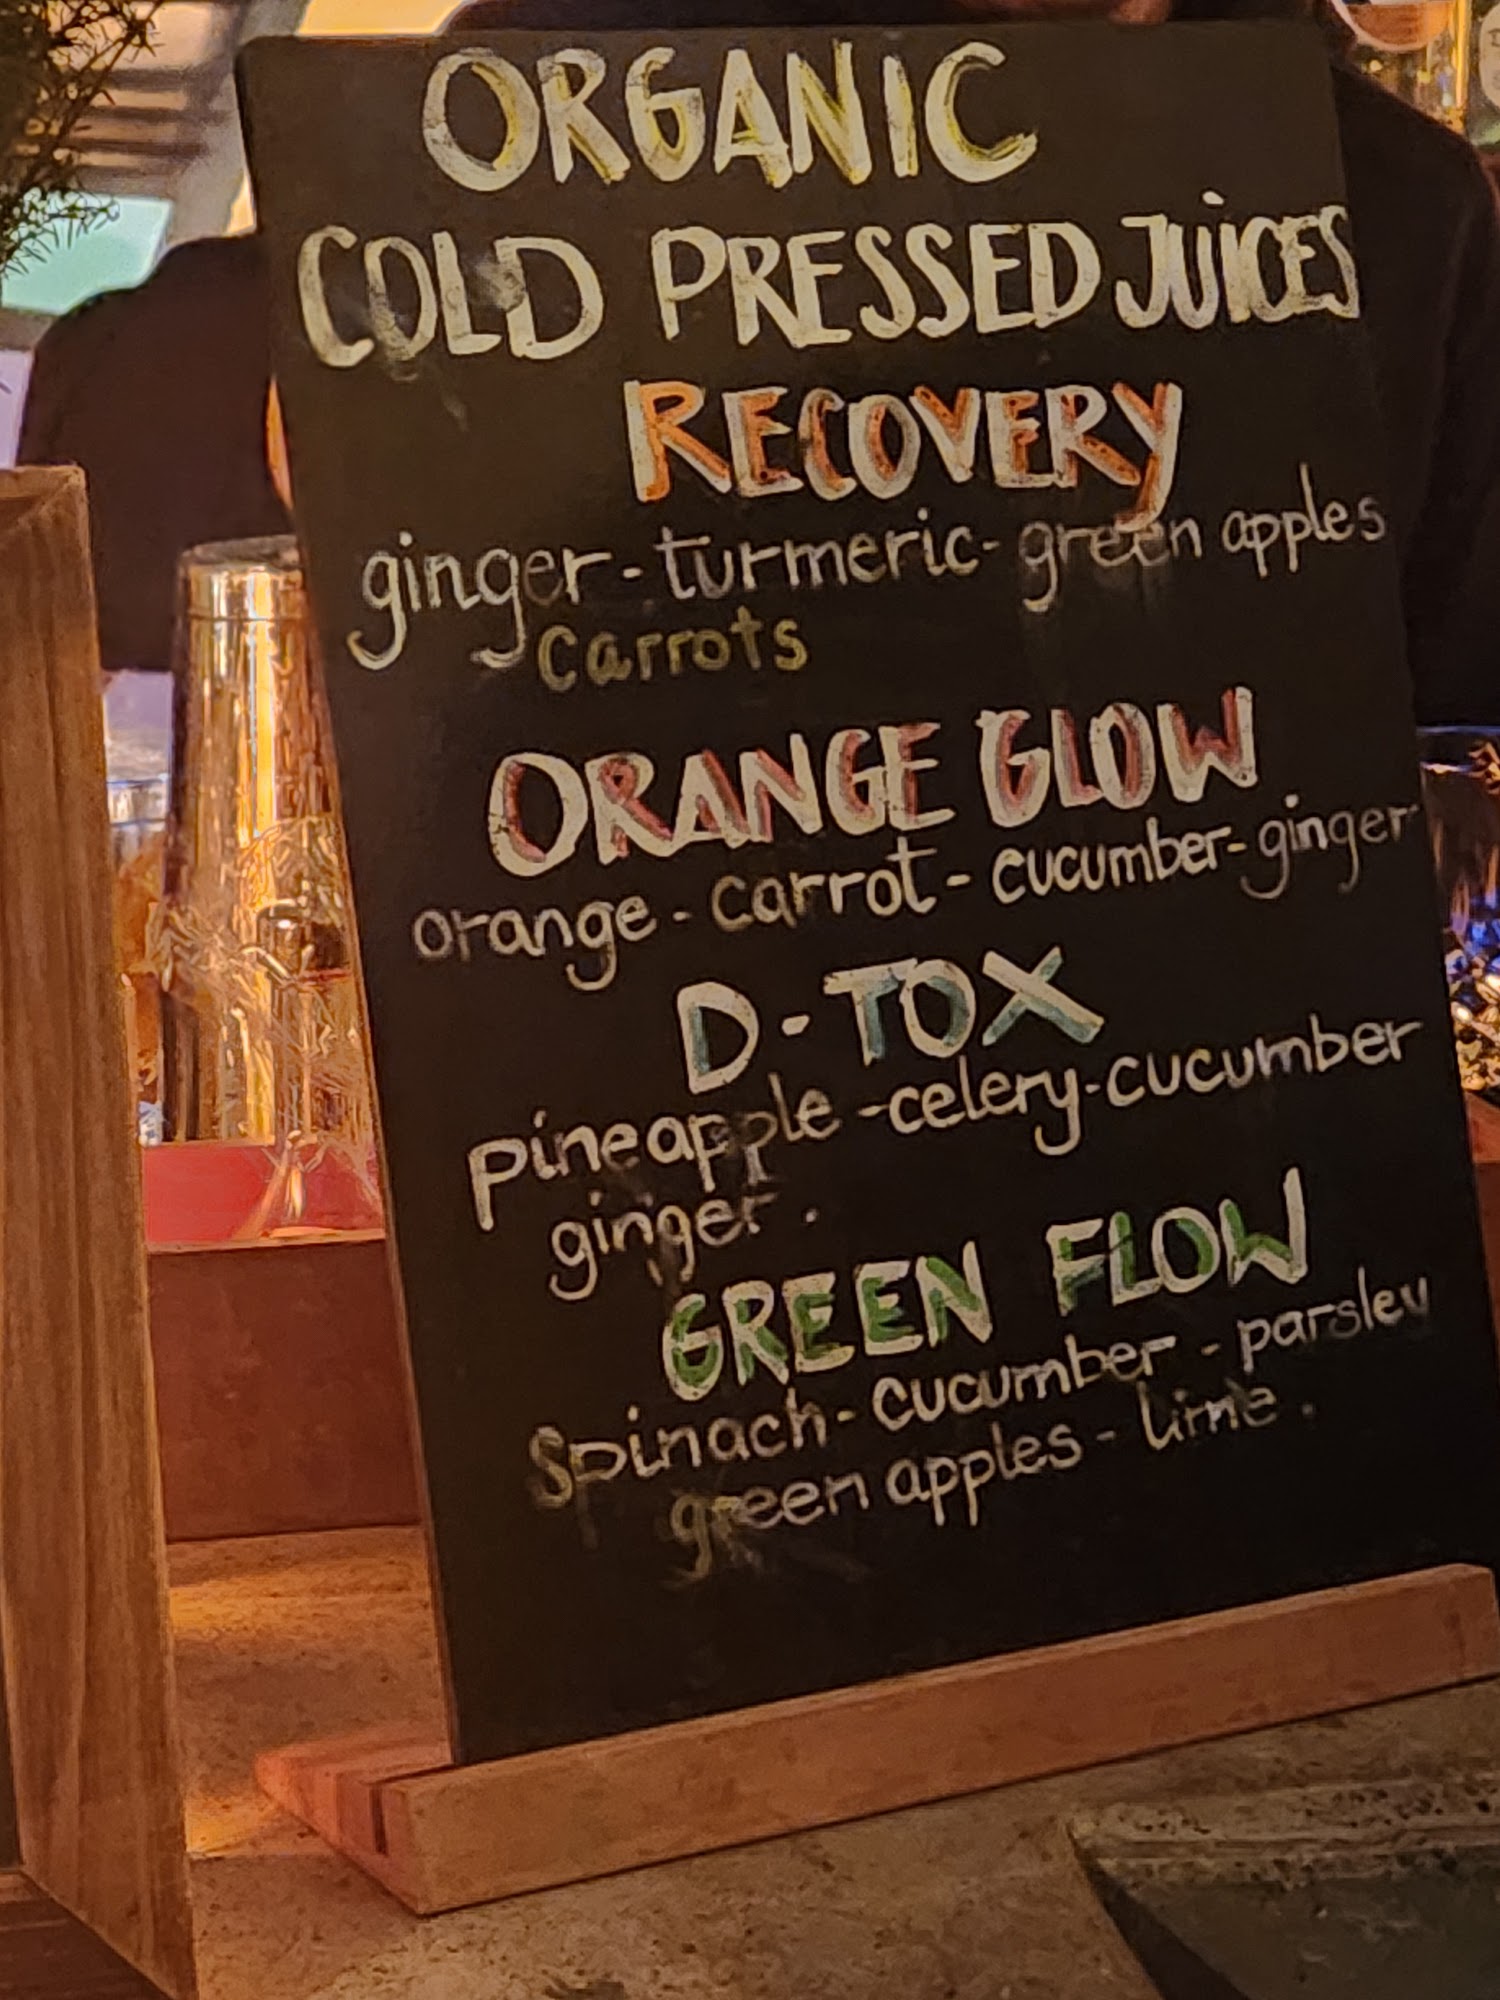 ORGANIC
COLD PRESSED JUICES
RECOVERY
ginger-turmeric-green apples
carrots
ORANGE GLOW
orange-carrot-cucumber-ginger
D-TOX
pineapple-celery-cucumber
ginger.
GREEN FLOW
Spinach-cucumber-parsley
green apples-lime.